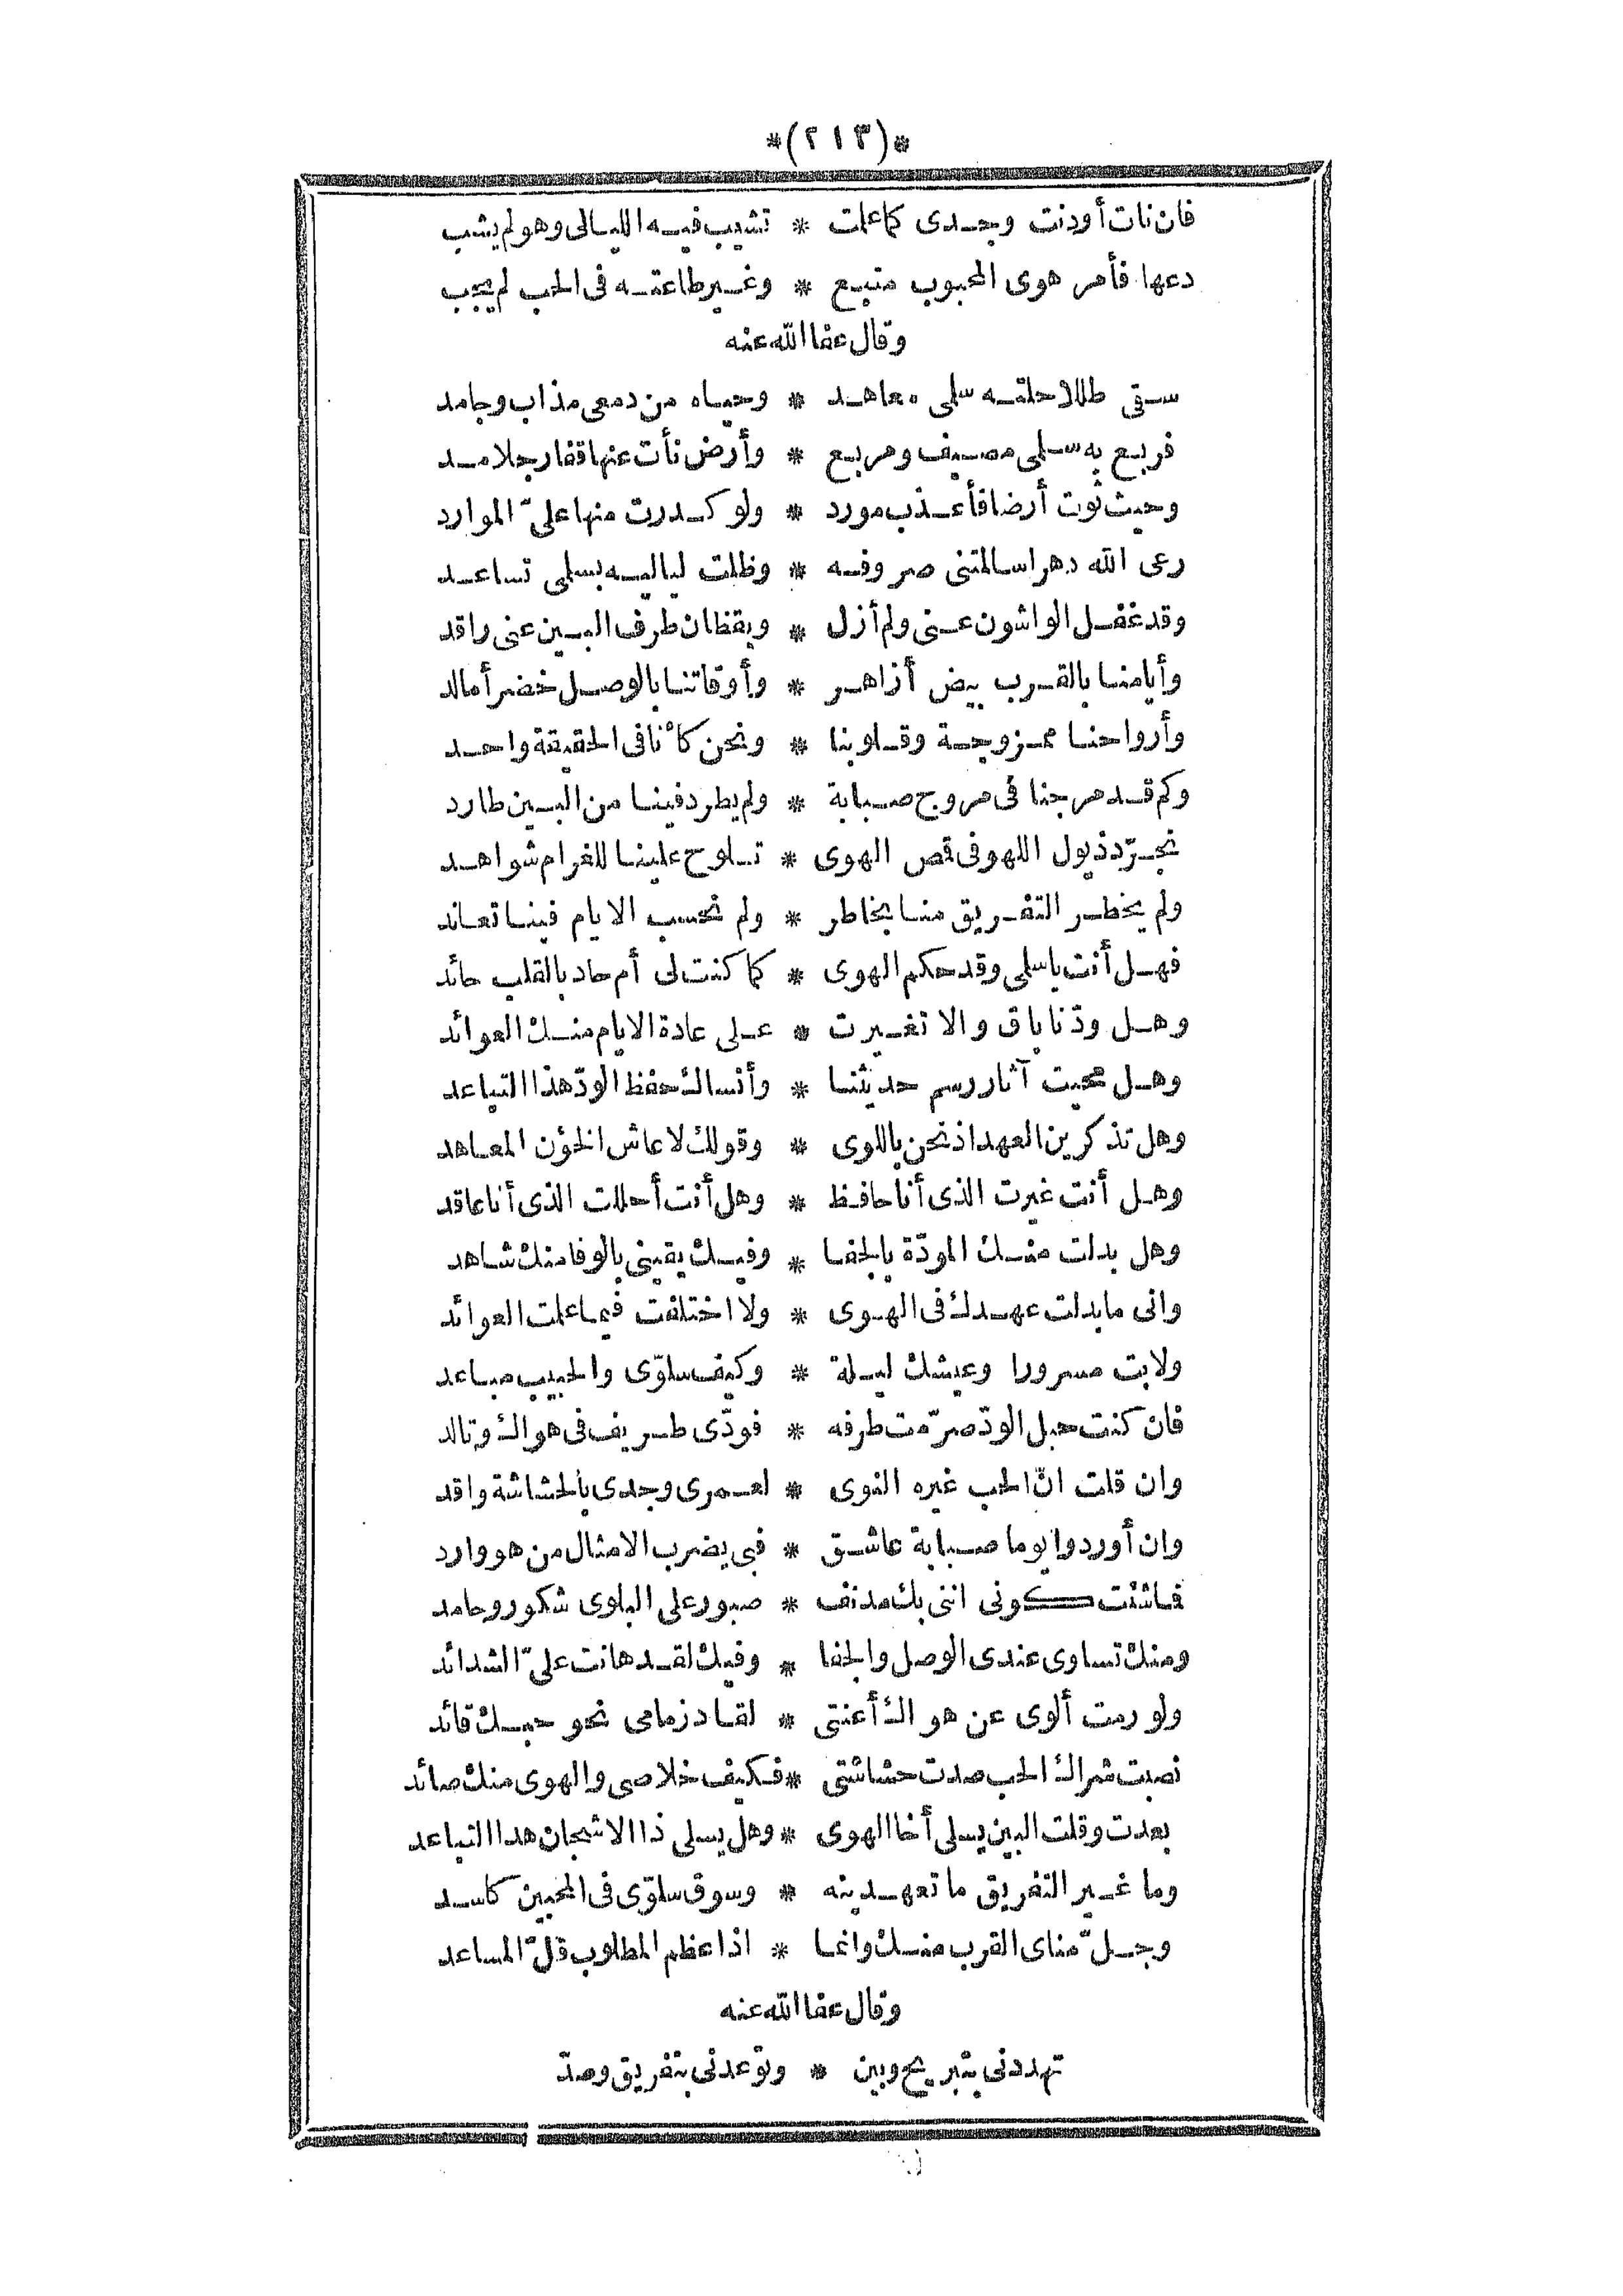 *(٢١٣)*
فان نات أودنت وجدى كما علمت * تشيب فيه الليالى وهو لم يشب
دعها فأمر هوى المحبوب متبع * وغير طاعته فى الحب لم يجب
وقال عفا الله عنه
سقى طللا حلته سلمى معاهد * وحياه من دمعى مذاب وجامد
فربع به سلمى مصيف ومربع * وأرض نأت عنها قفار جلامد
وحيث ثوت أرضا فأعذب مورد * ولو كدرت منها علىّ الموارد
رعى الله دهرا سالمتنى صروفه * وظلت لياليه بسلمى تساعد
وقد غفل الواشون عنى ولم أزل * ويقظان طرف البين عنى راقد
وأيامنا بالقرب بيض أزاهر * وأوقاتنا بالوصل خضر أمالد
وأرواحنا ممزوجة وقلوبنا * ونحن كأنا فى الحقيقة واحد
وكم قد مرجنا فى مروج صبابة * ولم يطرد فينا من البين طارد
نجرّ ذيول اللهو فى قمص الهوى * تلوح علينا للغرام شواهد
ولم يخطر التفريق منا بخاطر * ولم نحسب الايام فينا تعاند
فهل أنت يا سلمى وقد حكم الهوى * كما كنت لى أم حاد بالقلب حائد
وهل ودّنا باق والا تغيرت * على عادة الايام منك العوائد
وهل محيت آثار رسم حديثنا * وأنساك حفظ الودّ هذا التباعد
وهل تذكرين العهد اذ نحن باللوى * وقولك لا عاش الخؤن المعاهد
وهل أنت غيرت الذى أنا حافظ * وهل أنت أحللت الذى أنا عاقد
وهل بدلت منك المودّة بالجفا * وفيك يقينى بالوفا منك شاهد
وانى ما بدلت عهدك فى الهوى * ولا اختلفت فيما علمت العوائد
ولا بت مسرورا وعيشك ليلة * وكيف سلوّى والحبيب مباعد
فان كنت حبل الودّ صرّمت طرفه * فودّى طريف فى هواك وتالد
وان قلت انّ الحب غيره النوى * لعمرى وجدى بالحشاشة واقد
وان أوردوا يوما صبابة عاشق * فبى يضرب الامثال من هو وارد
فما شئت كونى اننى بك مدنف * صبور على البلوى شكور وحامد
ومنك تساوى عندى الوصل والجفا * وفيك لقد هانت علىّ الشدائد
ولو رمت ألوى عن هواك أعنتى * لقاد زمامى نحو حبك قائد
نصبت شراك الحب صدت حشاشتى * فكيف خلاصى والهوى منك صائد
بعدت وقلت البين يسلى أخا الهوى * وهل يسلى ذا الاشجان هدا التباعد
وما غير التفريق ما تعهدينه * وسوق سلوّى فى المحبين كاسد
وجلّ مناى القرب منك وانما * اذا عظم المطلوب قلّ المساعد
وقال عفا الله عنه
تهددنى بتبريح وبين * وتوعدنى بتفريق وصدّ